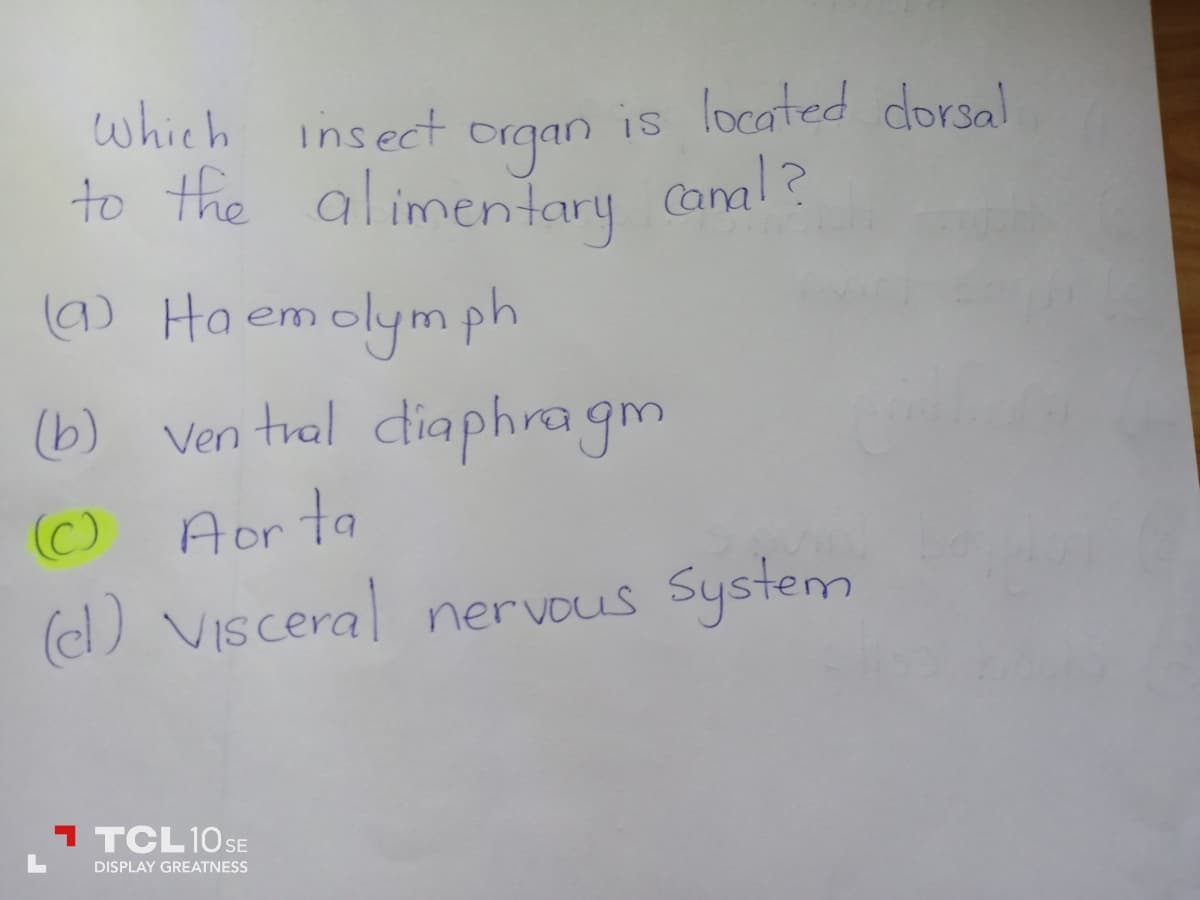 which insect organ is located dorsal
to the alimentary canal?
(a) Haemolymph
(b) ventral diaphragm
(c) Aorta
(d) visceral nervous system
TCL 10 SE
DISPLAY GREATNESS